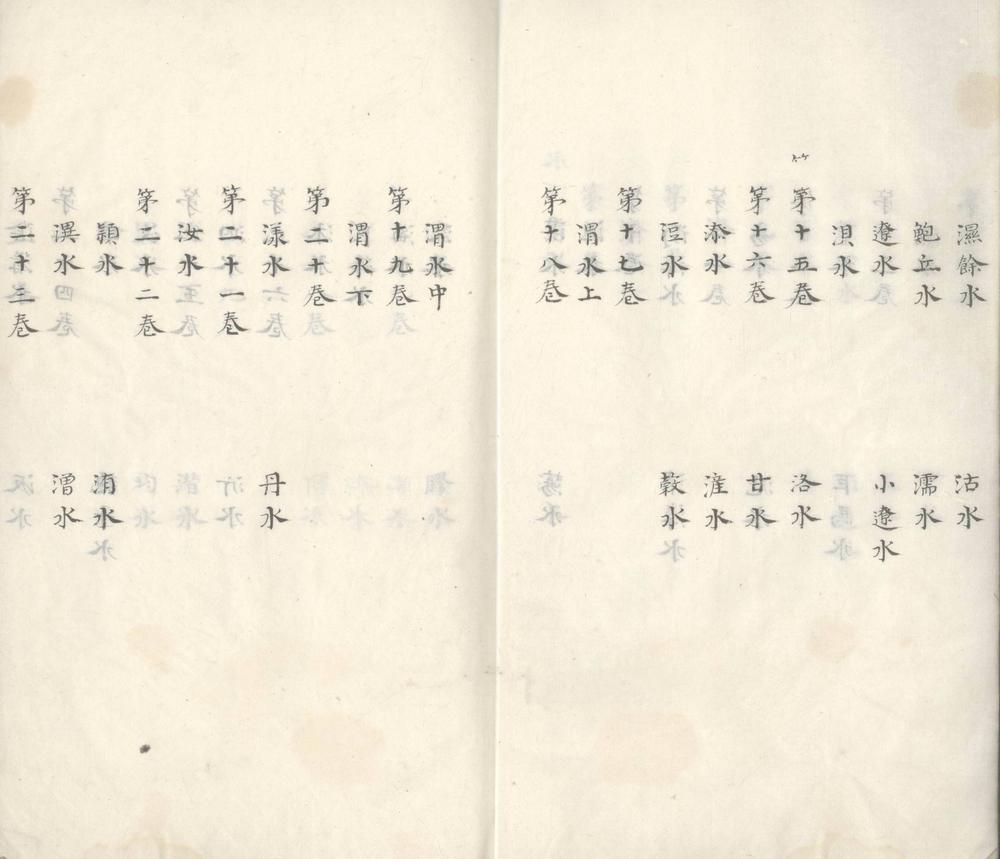 濕餘水　沽水
鮑丘水　濡水
遼水　小遼水
浿水
第十五卷　洛水
第十六卷　甘水
漆水　滻水
沮水　榖水
第十七卷
渭水上
第十八卷
渭水中
第十九卷
渭水下
第二十卷
漾水　丹水
第二十一卷
汝水
第二十二卷
潁水　洧水
潩水　潧水
第二十三卷